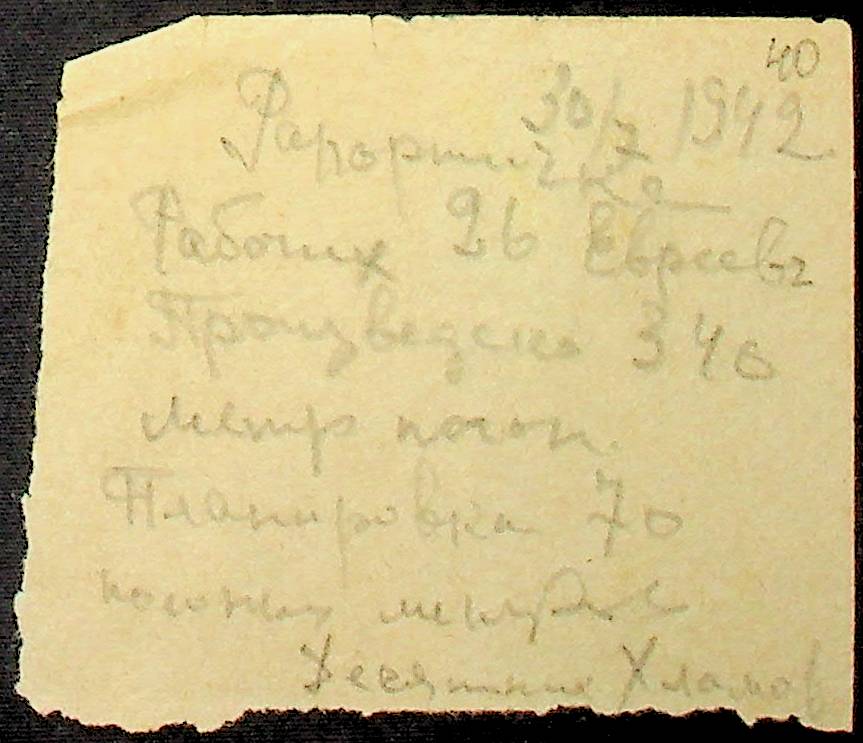 40
30/7 1942
Рапортичка
Рабочих 26 Евреевъ
Произведено 340
метр погон.
Планировка 70
погоных метров
Десятник Хламов